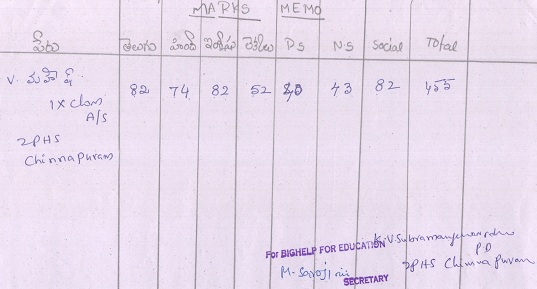 MARKS MEMO
పేరు తెలుగు హింది ఇంగ్లీషు లెక్కలు P.S N.S Social Total
V. మహేష్ 82 74 82 52 40 43 82 455
IX Class
A/S
ZPHS
Chinnapuram
For BIGHELP FOR EDUCATION K.V.Subramanyeswara
M. Sarojini P.D
SECRETARY ZPHS Chinnapuram